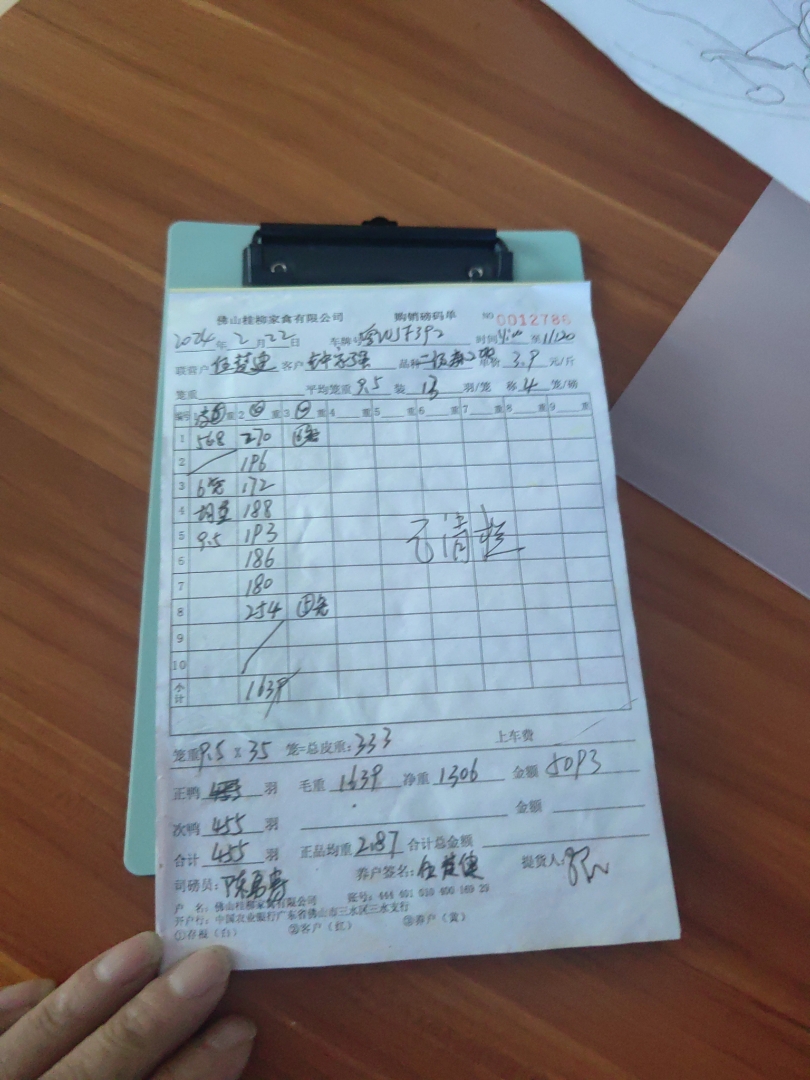 佛山桂柳家禽有限公司 购销磅码单 NO 0012786
2024年2月22日 车牌号 时间4:00至11:20
联营户 伍楚健 客户 品种 单价 3.9 元/斤
笼重 平均笼重 9.5 装 13 羽/笼 称 4 笼/磅
编号 重 2 重 3 重 4 重 5 重 6 重 7 重 8 重 9 重
1 568 270
2 196
3 6笼 172
4 均重 188
5 9.5 193
6 186
7 180
8 254
9
10
小计 1639
笼重 9.5 x 35 笼=总皮重: 333 上车费
正鸭 羽 毛重 1639 净重 1306 金额 5093
次鸭 455 羽 金额
合计 455 羽 正品均重 2.87 合计总金额
司磅员: 养户签名: 伍楚健 提货人:
户 名: 佛山桂柳家禽有限公司 账号: 444 401 010 400 169 29
开户行: 中国农业银行广东省佛山市三水区三水支行
①存根（白） ②客户（红） ③养户（黄）